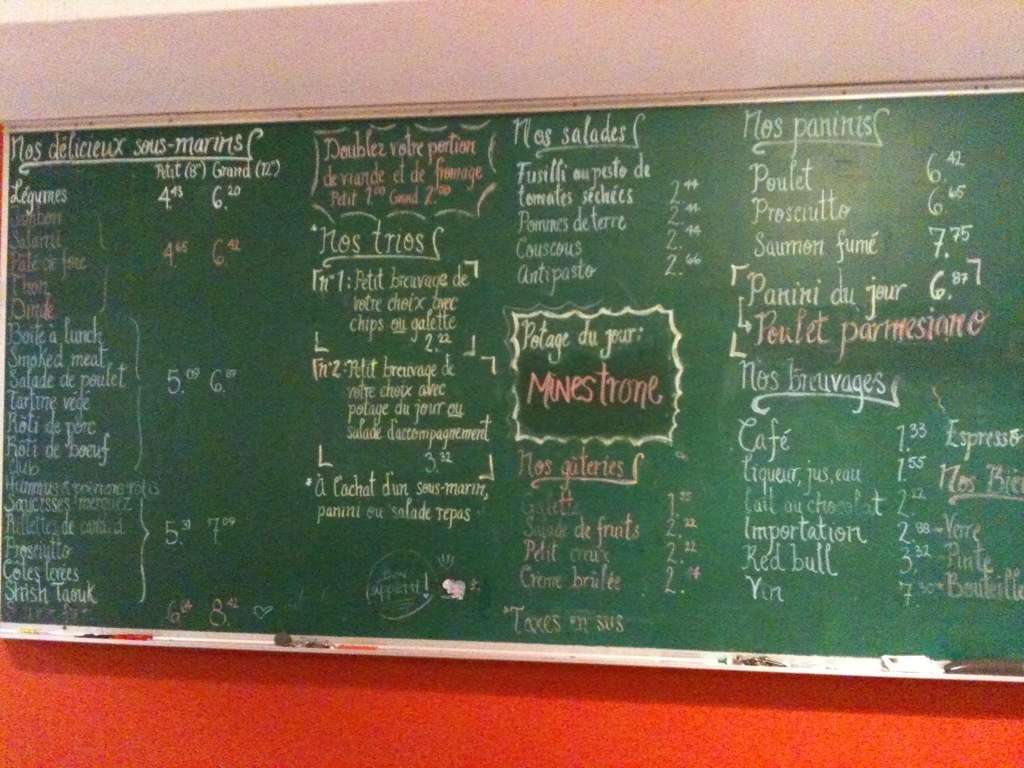 Nos délicieux sous-marins
Petit (8") Grand (12")
Légumes 4.43 6.20
Jambon
Salami
4.65 6.42
Pâté de foie
Thon
Dinde
Boite à lunch
Smoked meat
Salade de poulet 5.09 6.87
Tartine végé
Rôti de porc
Rôti de boeuf
Club
Hummus & poivrons rôtis
Saucisses merguez
Rillettes de canard 5.31 7.09
Prosciutto
Côtes levées
Shish Taouk
8.42
Doublez votre portion
de viande et de fromage
Petit 1.00 Grand 2.00
*Nos trios
n°1: Petit breuvage de
votre choix avec
chips ou galette
2.22
n°2: Petit breuvage de
votre choix avec
potage du jour ou
salade d'accompagnement
3.32
*à l'achat d'un sous-marin,
panini ou salade repas
Bon
appétit!
Nos salades
Fusilli au pesto de
tomates séchées 2.44
Pommes de terre 2.44
Couscous 2.44
Antipasto 2.66
Potage du jour:
Minestrone
Nos gâteries
Galette 1.
Salade de fruits 2.22
Petit creux 2.22
Crème brûlée 2.
*Taxes en sus
Nos paninis
Poulet 6.42
Prosciutto 6.65
Saumon fumé 7.75
Panini du jour 6.87
Poulet parmesiano
Nos breuvages
Café 1.33
Liqueur, jus, eau 1.55
Lait au chocolat 2.22
Importation 2.88
Red bull 3.32
Vin 7.50
Espresso
Nos Biè
Verre
Pinte
Bouteille